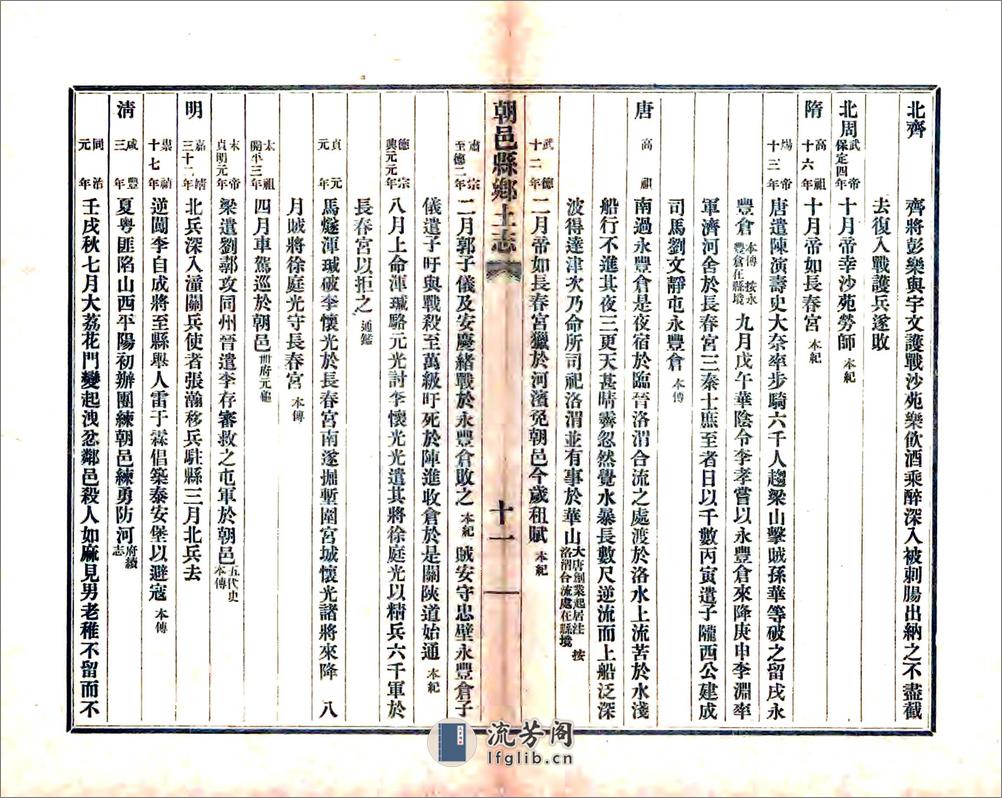 北齊　齊將彭樂與宇文護戰沙苑樂飲酒乘醉深入被刺腸出納之不盡截
去復入戰護兵遂敗
北周　武帝保定四年　十月帝幸沙苑勞師　本紀
隋　高祖十六年　十月帝如長春宮　本紀
煬帝十三年　唐遣陳演壽史大奈率步騎六千人趨梁山擊賊孫華等破之留戌永
豐倉　本傳　按永豐倉在縣境　九月戊午華陰令李孝嘗以永豐倉來降庚申李淵率
軍濟河舍於長春宮三秦士庶至者日以千數丙寅遣子隴西公建成
司馬劉文靜屯永豐倉　本傳
唐　高祖　南過永豐倉是夜宿於臨晉洛渭合流之處渡於洛水上流苦於水淺
船行不進其夜三更天甚晴霽忽然覺水暴長數尺逆流而上船泛深
波得達津次乃命所司祀洛渭並有事於華山　大唐創業起居注　按洛渭合流處在縣境
武德十二年　二月帝如長春宮獵於河濱免朝邑今歲租賦　本紀
朝邑縣鄉土志　十一
肅宗至德二年　二月郭子儀及安慶緒戰於永豐倉敗之　本紀　賊安守忠壁永豐倉子
儀遣子旰與戰殺至萬級旰死於陣進收倉於是關陝道始通　本紀
德宗興元元年　八月上命渾瑊駱元光討李懷光光遣其將徐庭光以精兵六千軍於
長春宮以拒之　通鑑
貞元元年　馬燧渾瑊破李懷光於長春宮南遂掘塹圍宮城懷光諸將來降　八
月賊將徐庭光守長春宮　本傳
太祖開平三年　四月車駕巡於朝邑　冊府元龜
末帝貞明元年　梁遣劉鄩攻同州晉遣李存審救之屯軍於朝邑　五代史本傳
明　嘉靖三十二年　北兵深入潼關兵使者張瀚移兵駐縣三月北兵去
崇禎十七年　逆闖李自成將至縣舉人雷于霖倡築泰安堡以避寇　本傳
清　咸豐三年　夏粵匪陷山西平陽初辦團練朝邑練勇防河　府續志
同治元年　壬戌秋七月大荔花門變起洩忿鄰邑殺人如麻見男老稚不留而不
流芳阁
lfglib.cn